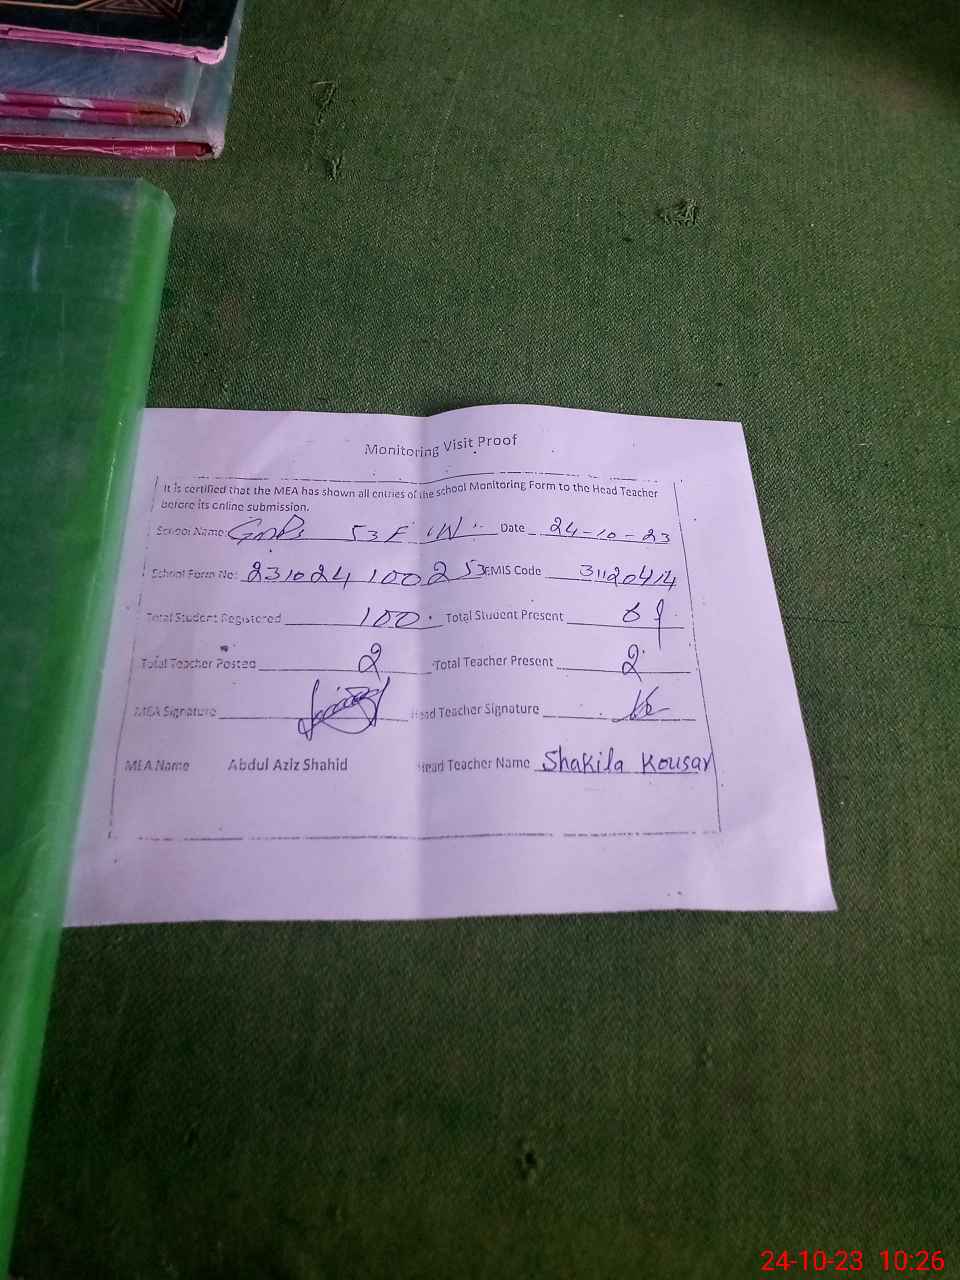 Monitoring Visit Proof
It is certified that the MEA has shown all entries of the school Monitoring Form to the Head Teacher
before its online submission.
School Name: 53 F Date 24-10-23
School Form No: 23102410025 EMIS Code 31120414
Total Student Registered 100 Total Student Present
Total Teacher Posted 2 Total Teacher Present 2
MEA Signature Head Teacher Signature
MEA Name Abdul Aziz Shahid Head Teacher Name Shakila Kousar
24-10-23 10:26